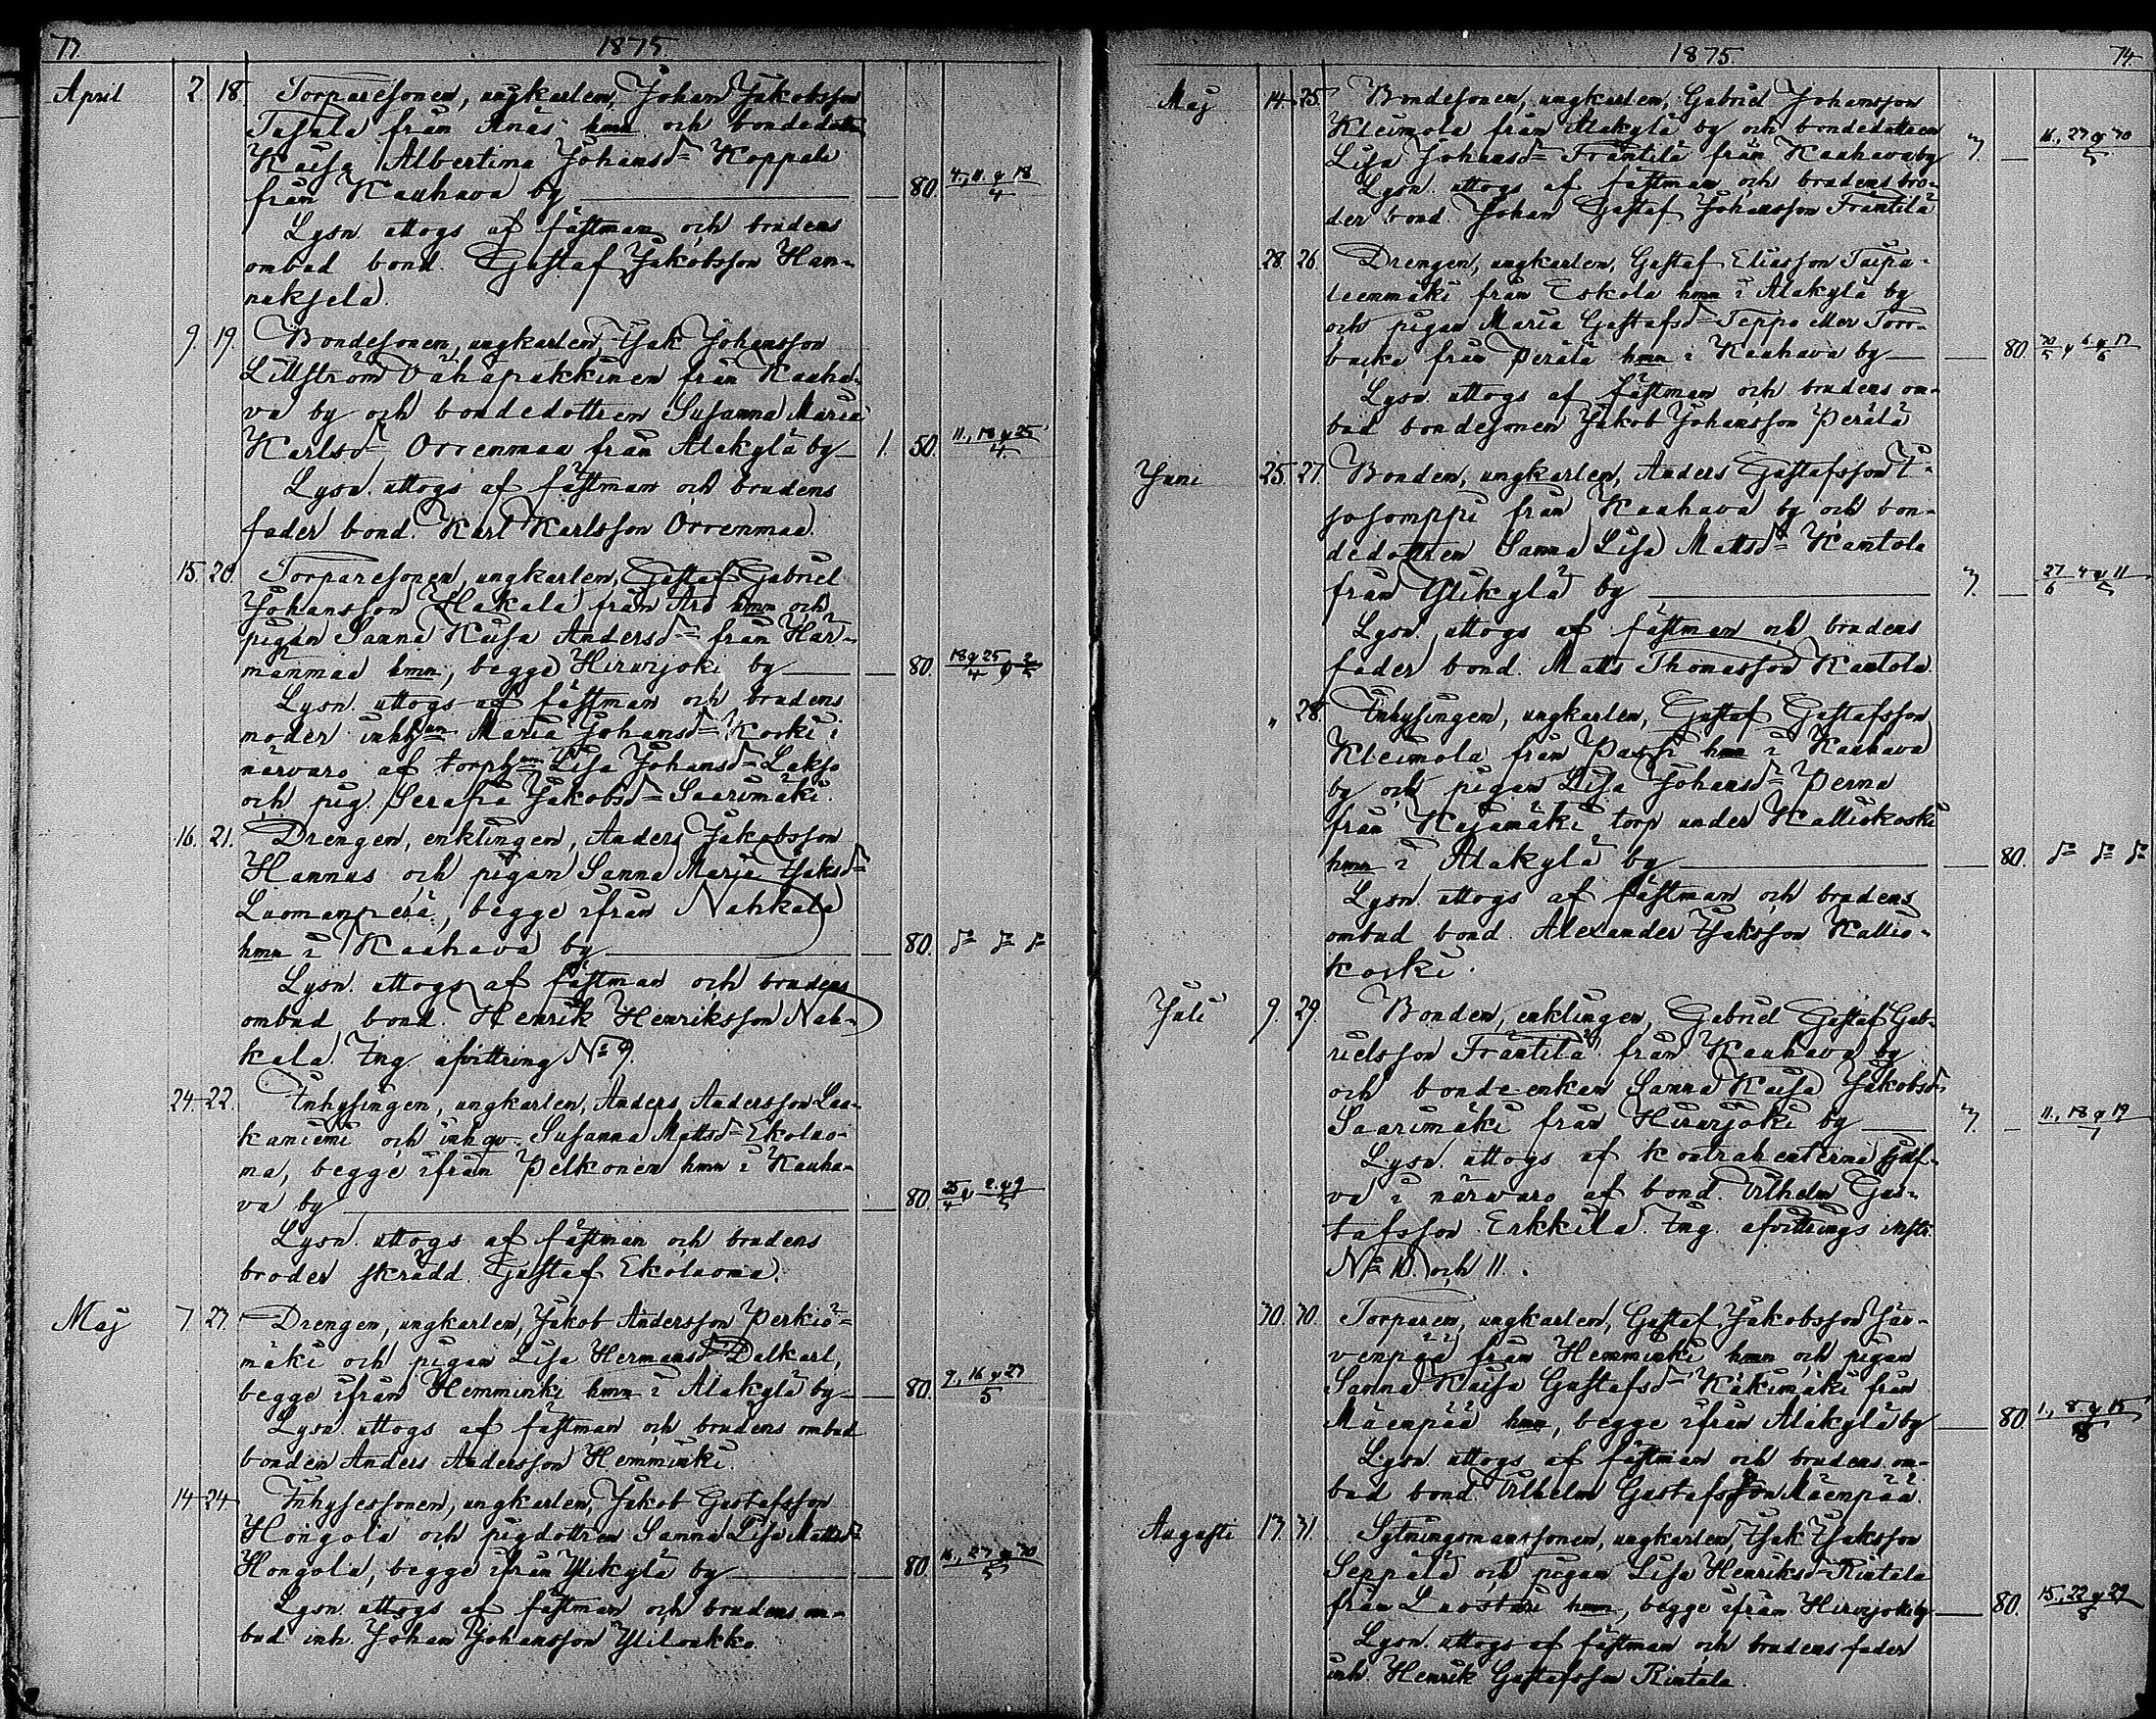 1875
April 2. 18. Torparesonen, ungkarlen, Johan Jakobsson
Tasala från Anäs hmn och bondedottr
Kaisa Albertina Johansd:r Koppala
från Kauhava by — 80. 4, 11. q 18/4
Lysn. uttogs af fästman och brudens
ombud bond. Gustaf Jakobsson Han-
nuksela.
9. 19. Bondesonen, ungkarlen, Isak Johansson
Lillström Vähäpakkinen från Kauha-
va by och bondedottren Susanna Maria
Karlsd:r Orrenmaa från Alakylä by 1. 50. 11., 18 q 25/4
Lysn. uttogs af fästman och brudens
fader bond. Karl Karlsson Orrenmaa.
15. 20. Torparesonen, ungkarlen, Gustaf Gabriel
Johansson Hakala från Aro hmn och
pigan Sanna Kaisa Andersd:r från Här-
mänmaa hmn, begge Hirvijoki by — 80. 18 q 25/4 q 2/5
Lysn. uttogs af fästman och brudens
moder inhys:an Maria Johansd:r Korki i
närvaro af torph:an Lisa Johansd:r Lakso
och pig. Serafia Jakobsd:r Saarimäki.
16. 21. Drengen, enklingen, Anders Jakobsson
Hannus och pigan Sanna Maria Isaksd:r
Luomanperä, begge ifrån Nahkala
hmn i Kauhava by — 80. d:o d:o d:o
Lysn. uttogs af fästman och brudens
ombud bond. Henrik Henriksson Nah-
kala. Ing. afvittring N:o 9.
24. 22. Inhysingen, ungkarlen, Anders Andersson Laa-
kaniemi och inh.qv. Susanna Mattsd:r Ekoluo-
ma, begge ifrån Pelkonen hmn i Kauha-
va by — 80. 25/4 q 2. q 9/5
Lysn. uttogs af fästman och brudens
broder skrädd. Gustaf Ekoluoma.
Maj 7. 23. Drengen, ungkarlen, Jakob Andersson Perkiö-
mäki och pigan Lisa Hermansd:r Dalkarl,
begge ifrån Hemminki hmn i Alakylä by — 80. 9, 16 q 23/5
Lysn. uttogs af fästman och brudens ombud
bonden Anders Andersson Hemminki.
14. 24. Inhysessonen, ungkarlen, Jakob Gustafsson
Hongola och pigdottren Sanna Lisa Mattsd:r
Hongola, begge ifrån Ylikylä by — 80. 16., 23 q 30/5
Lysn. uttogs af fästman och brudens om-
bud inh. Johan Johansson Yliloukko.
1875. 74.
Maj 14. 25. Bondesonen, ungkarlen, Gabriel Johansson
Kleimola från Alakylä by och bondedottren
Lisa Johansd:r Frantilä från Kauhava by 3. — 16., 23 q 30/5
Lysn. uttogs af fästman och brudens bro-
der bond. Johan Gustaf Johansson Frantilä
28. 26. Drengen, ungkarlen, Gustaf Eliasson Taipa-
leenmäki från Eskola hmn i Alakylä by
och pigan Maria Gustafsd:r Teppo eller Torr-
backa från Perälä hmn i Kauhava by — 80. 30/5 q 6 q 13/6
Lysn. uttogs af fästman och brudens om-
bud bondesonen Jakob Johansson Perälä
Juni 25. 27. Bonden, ungkarlen, Anders Gustafsson I-
sosomppi från Kauhava by och bon-
dedottren Sanna Lisa Mattsd:r Kantola
från Ylikylä by — 3. — 27/6 4 q 11/5
Lysn. uttogs af fästman och brudens
fader bond. Matts Thomasson Kantola.
" 28. Inhysingen, ungkarlen, Gustaf Gustafsson
Kleimola från Passi hmn i Kauhava
by och pigan Lisa Johansd:r Perna
från Kajamäki torp under Kalliokoski
hmn i Alakylä by — 80. d:o d:o d:o
Lysn. uttogs af fästman och brudens
ombud bond. Alexander Isaksson Kallio-
koski.
Juli 9. 29. Bonden, enklingen, Gabriel Gustaf Gab-
rielsson Frantilä från Kauhava by
och bonde-enkan Sanna Kaisa Jakobsd:r
Saarimäki från Hirvijoki by — 3. — 11., 18 q 19/7
Lysn. uttogs af kontrahenterna sjelf-
va i närvaro af bond. Vilhelm Gus-
tafsson Erkkilä. Ing. afvittrings instr.
N:o 10. och 11.
30. 30. Torparen, ungkarlen, Gustaf Jakobsson Jär-
venpää från Hemminki hmn och pigan
Sanna Kaisa Gustafsd:r Käkimäki från
Mäenpää hmn, begge ifrån Alakylä by — 80. 1., 8 q 15/8
Lysn. uttogs af fästman och brudens om-
bud bond. Vilhelm Gustafsson Mäenpää.
Augusti 13. 31. Sytningsmanssonen, ungkarlen, Isak Isaksson
Seppälä och pigan Lisa Henriksd:r Rintala
från Luostari hmn, begge ifrån Hirvijoki by — 80. 15., 22 q 29/8
Lysn. uttogs af fästman och brudens fader
inh. Henrik Gustafsson Rintala.